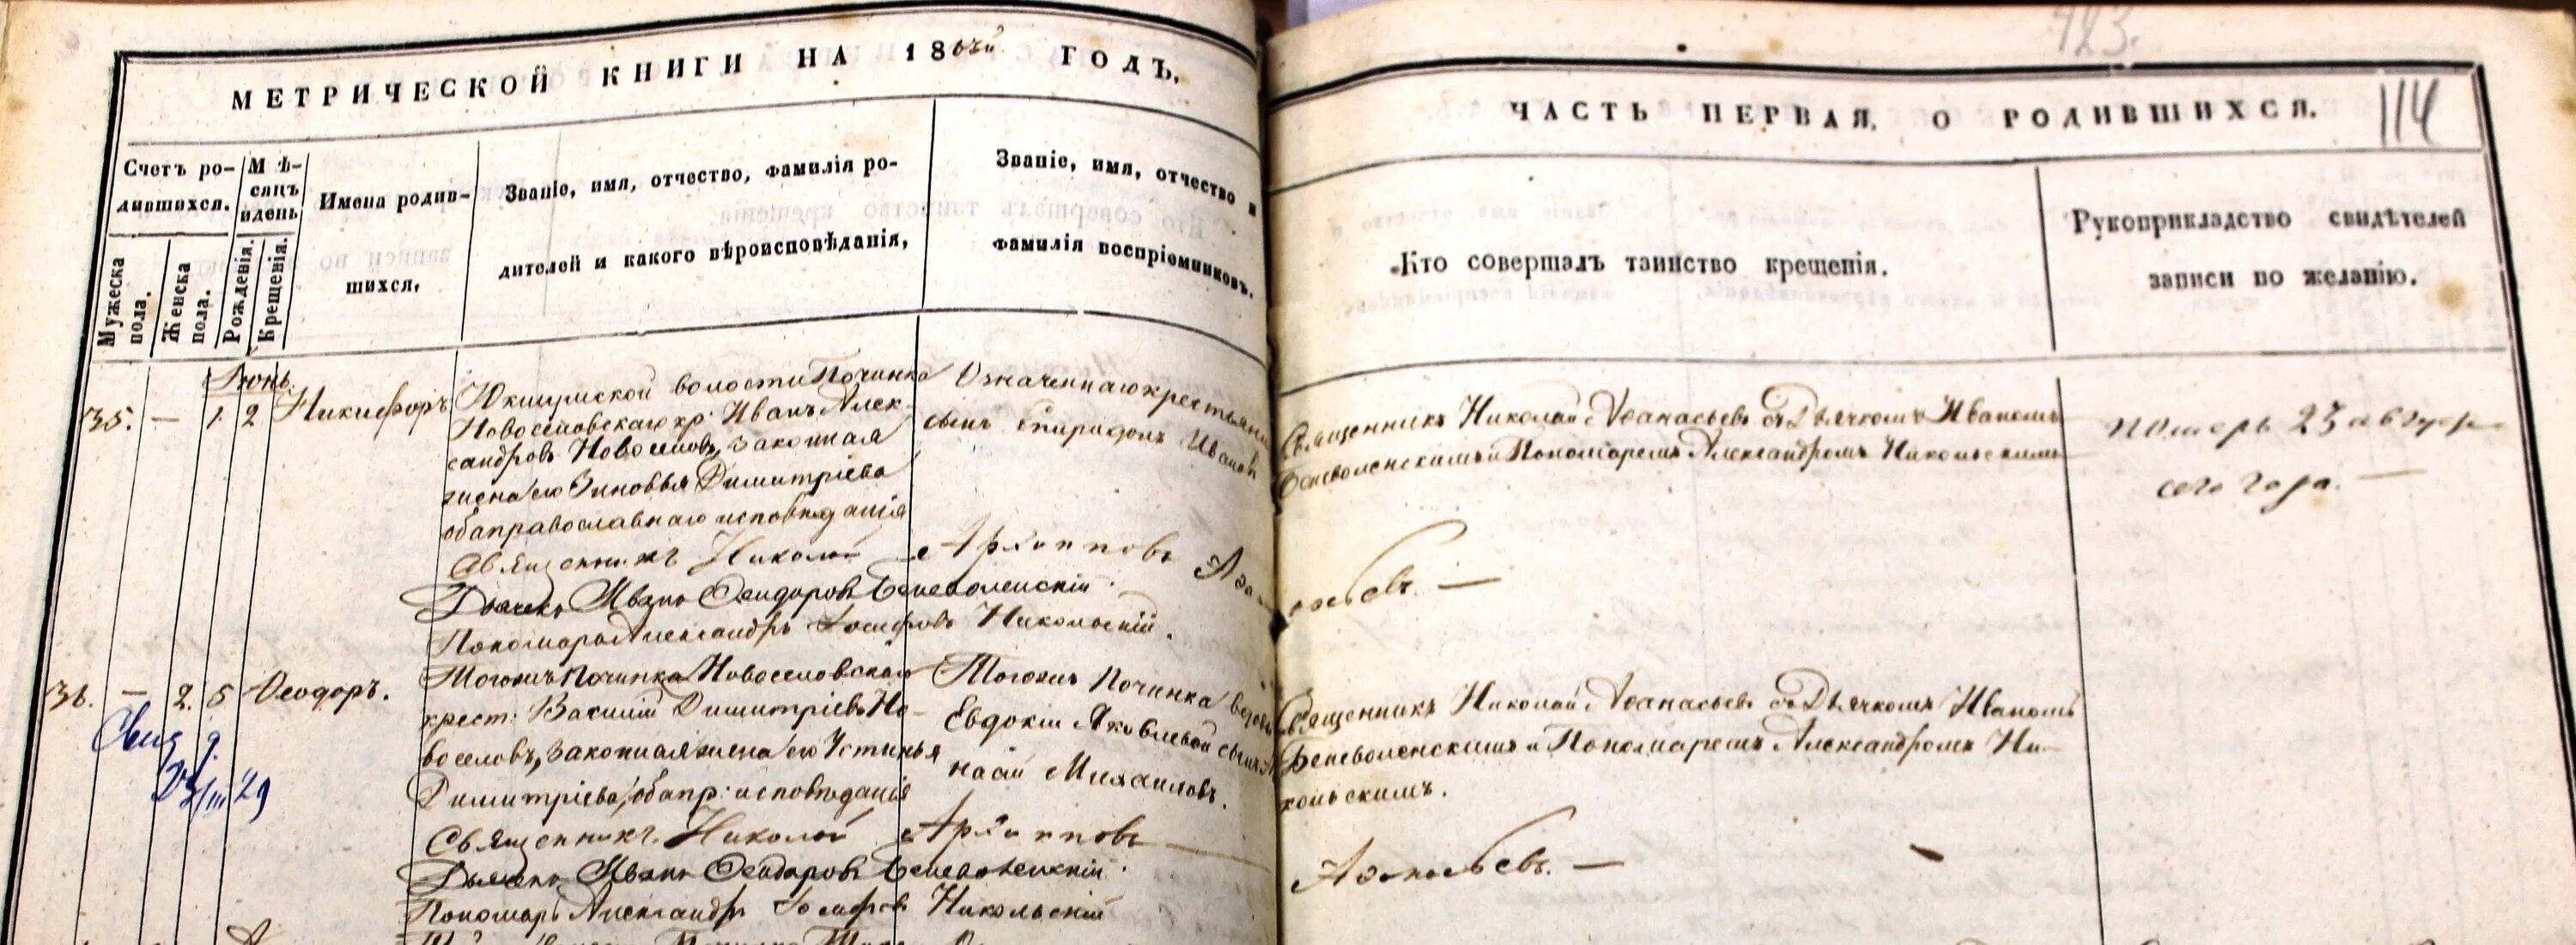 МЕТРИЧЕСКОЙ КНИГИ НА 18 ГОДЪ,
Счетъ ро-
дившихся.
Мужеска
пола.
Женска
пола.
Мѣ-
сяцъ
и день
Рожденія.
Крещенія.
Имена родив-
шихся,
Званіе, имя, отчество, фамилія ро-
дителей и какого вѣроисповѣданія,
Званіе, имя, отчество и
фамилія воспріемниковъ.
423.
ЧАСТЬ ПЕРВАЯ, О РОДИВШИХСЯ.
114
Кто совершалъ таинство крещенія.
Рукоприкладство свидѣтелей
записи по желанію.
Іюнь.
35. — 1. 2 Никифоръ
Юкшумской волости Починка
Новоселовскаго кр: Иванъ Алек-
сандровъ Новоселовъ, законная
жена его Зиновья Димитріева
оба православнаго исповѣданія
Означеннаго крестьянина
сынъ Спиридонъ Ивановъ
Священникъ Николай Аѳанасьевъ съ Дьячкомъ Иваномъ
Беневоленскимъ и Пономаремъ Александромъ Никольскимъ
Померъ 23 август
сего года. —
Священникъ Николай Архипповъ Аѳанасьевъ. —
Дьячекъ Иванъ Ѳеодоровъ Беневоленскій.
Пономарь Александръ Іосифовъ Никольскій.
36. — 2. 5 Ѳеодоръ.
Тогожъ Починка Новоселовскаго
крест: Василій Димитріевъ Но-
воселовъ, законная жена его Устинья
Димитріева, оба пр: исповѣданія
Тогожъ Починка вдовы
Евдокіи Яковлевой сынъ
насій Михаиловъ.
Священникъ Николай Аѳанасьевъ съ Дьячкомъ Иваномъ
Беневоленскимъ и Пономаремъ Александромъ Ни-
кольскимъ.
Священникъ Николай Архипповъ — Аѳанасьевъ. —
Дьячекъ Иванъ Ѳеодоровъ Беневоленскій.
Пономарь Александръ Іосифовъ Никольскій